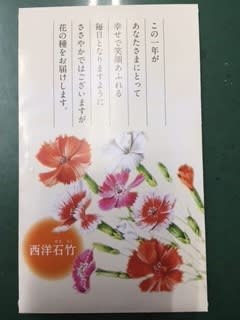 この一年が
あなたさまにとって
幸せで笑顔あふれる
毎日となりますように
ささやかではございますが
花の種をお届けします。
西洋石竹